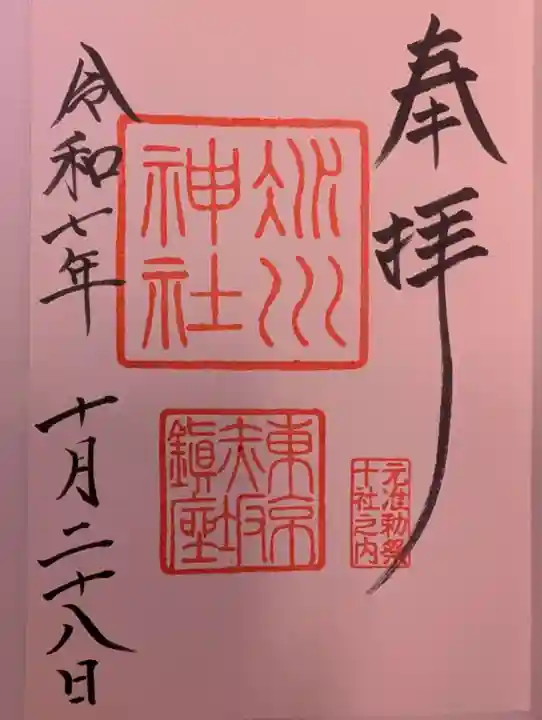 奉拝
氷川
神社
東京
赤坂
鎮座
元准勅祭
十社之内
令和七年 十月二十八日